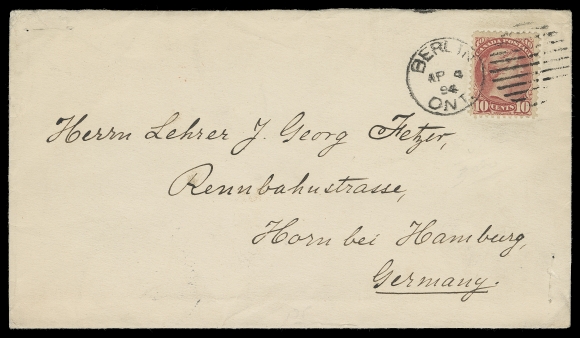 BERLIN
AP 4
94
ONT.
CANADA POSTAGE
10 CENTS 10
Herrn Lehrer J. Georg Fetzer,
Rennbahnstrasse,
Horn bei Hamburg,
Germany.